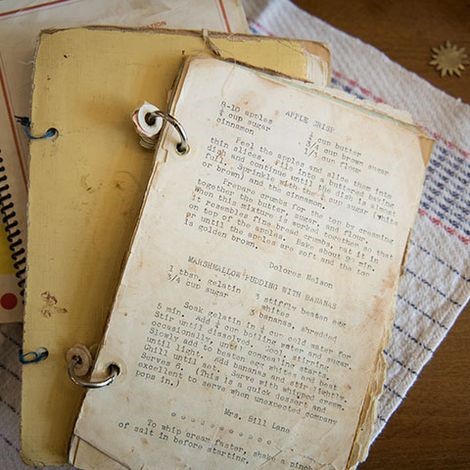 APPLE CRISP
8-10 apples ¼ cup butter
¾ cup sugar ¾ cup brown sugar
cinnamon flour
Peel the apples and slice them into
thin slices. Fill into a buttered baking
dish and continue until the dish is about
full. Sprinkle with the sugar (white
or brown) and the cinnamon.
Prepare crumbs for the top by creaming
together the butter, sugar, and flour.
When this mixture is worked together so that
it resembles fine bread crumbs, pat it in
on top of the apples. Bake about 20 min.
or until the apples are soft and the top
is golden brown.
Dolores Nelson
MARSHMALLOW PUDDING WITH BANANAS
1 tbsn. gelatin 3 stiffly beaten egg
3/4 cup sugar whites
3 bananas, shredded
Soak gelatin in ¼ cup cold water for
5 min. Add ¾ cup boiling water and sugar.
Stir until dissolved. Cool, stirring
occasionally, until consistency
Slowly add to beaten egg whites and beat
until light. Add bananas and stir lightly.
Chill until set. Serve with whipped cream.
Serves 6. (This is a quick dessert and
excellent to serve when unexpected company
pops in.)
Mrs. Bill Lane
To whip cream faster, shake a pinch
of salt in before starting.